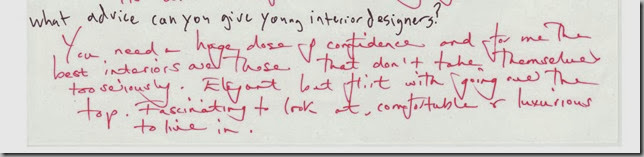 what advice can you give young interior designers?
You need a huge dose of confidence and for me the
best interiors are those that don't take themselves
too seriously. Elegant but flirt with going over the
top. Fascinating to look at, comfortable & luxurious
to live in.